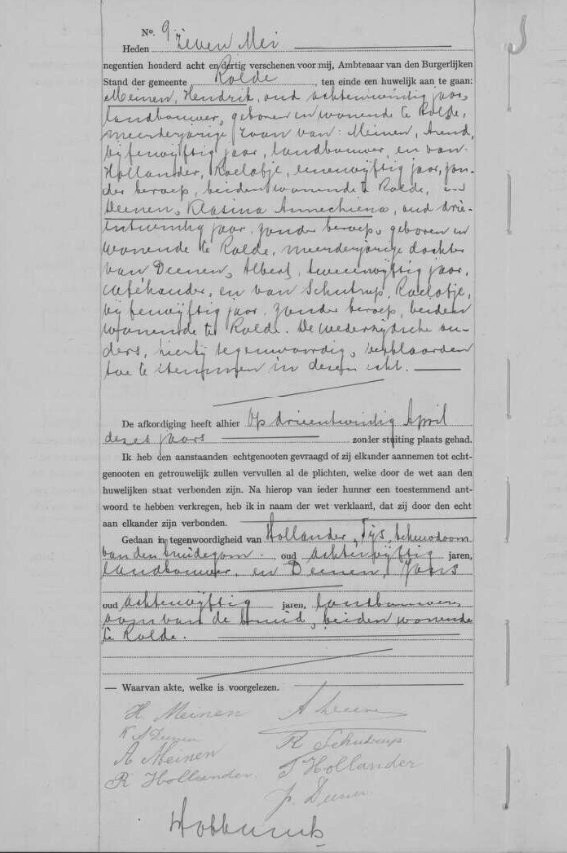 No. 9
Heden zeven Mei
negentien honderd acht en dertig verschenen voor mij, Ambtenaar van den Burgerlijken
Stand der gemeente Rolde, ten einde een huwelijk aan te gaan:
Meinen, Hendrik, oud achtentwintig jaar,
landbouwer, geboren en wonende te Rolde,
meerderjarige zoon van: Meinen, Arend,
vijfenvijftig jaar, landbouwer, en van
Hollander, Roelofje, eenenvijftig jaar, zon-
der beroep, beiden wonende te Rolde, en
Deenen, Klasina Annechiena, oud drie-
entwintig jaar, zonder beroep, geboren en
wonende te Rolde, meerderjarige dochter
van Deenen, Albert, tweeenvijftig jaar,
, en van Schutrup, Roelofje,
vijfenvijftig jaar, zonder beroep, beiden
wonende te Rolde. De wederzijdsche ou-
ders, hierbij tegenwoordig, verklaarden
toe te stemmen in dezen echt.
De afkondiging heeft alhier op drieentwintig April
dezes jaars zonder stuiting plaats gehad.
Ik heb den aanstaanden echtgenooten gevraagd of zij elkander aannemen tot echt-
genooten en getrouwelijk zullen vervullen al de plichten, welke door de wet aan den
huwelijken staat verbonden zijn. Na hierop van ieder hunner een toestemmend ant-
woord te hebben verkregen, heb ik in naam der wet verklaard, dat zij door den echt
aan elkander zijn verbonden.
Gedaan in tegenwoordigheid van Hollander, Tijs, behuwdoom
van den bruidegom oud achtenvijftig jaren,
landbouwer, en Deenen, Jans
oud achtenvijftig jaren, landbouwer,
oom van de bruid, beiden wonende
te Rolde.
— Waarvan akte, welke is voorgelezen.
H Meinen A Deenen
K A Deenen R Schutrup
A Meinen T Hollander
R Hollander J. Deenen